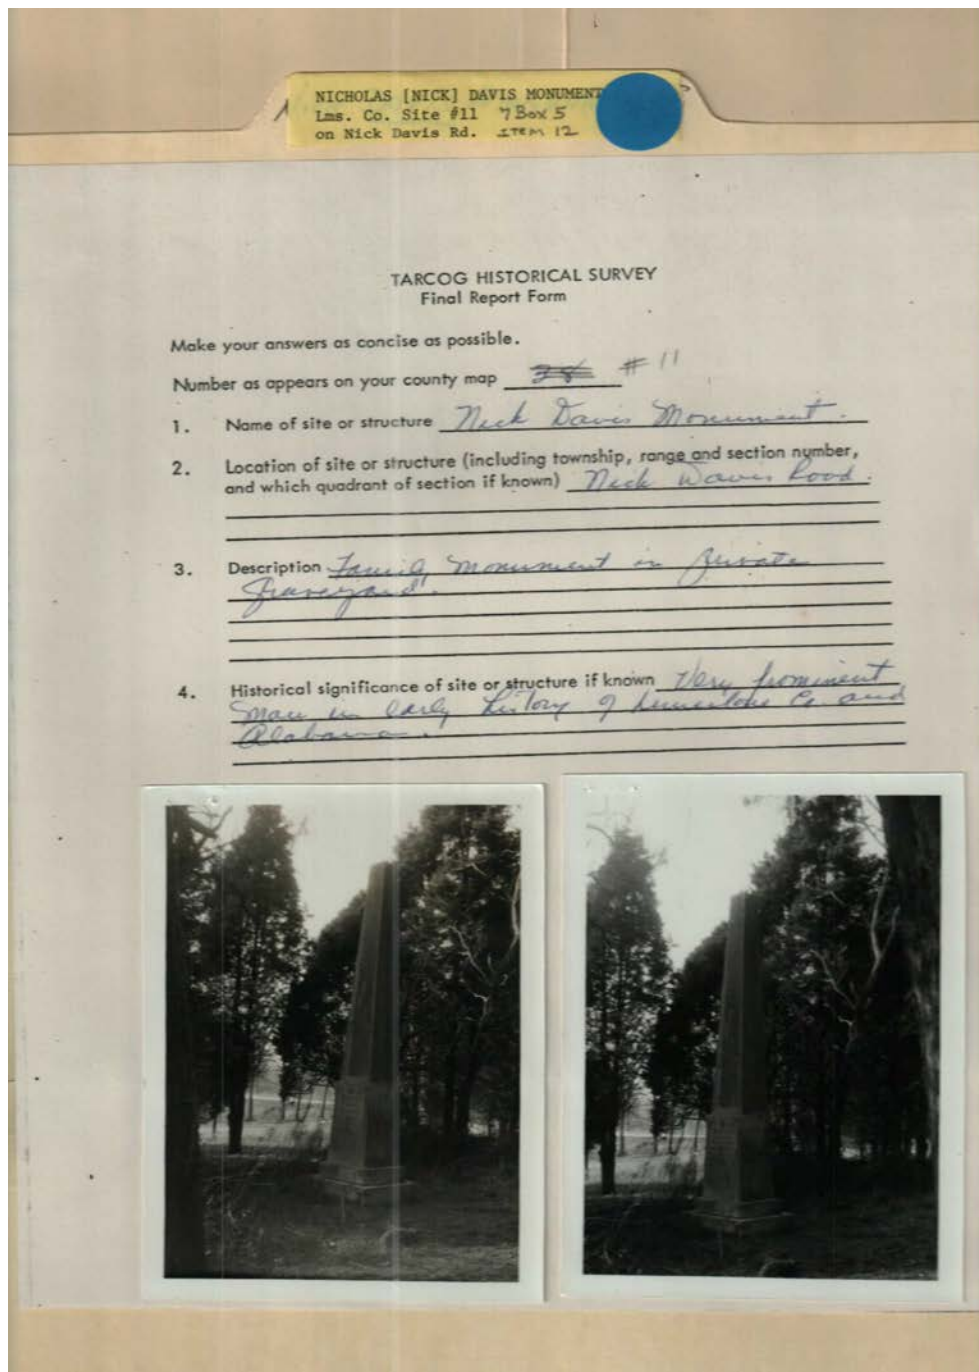 NICHOLAS [NICK] DAVIS MONUMENT
Lms. Co. Site #11 7 Box 5
on Nick Davis Rd. ITEM 12
TARCOG HISTORICAL SURVEY
Final Report Form
Make your answers as concise as possible.
Number as appears on your county map 38 #11
1. Name of site or structure Nick Davis Monument.
2. Location of site or structure (including township, range and section number,
and which quadrant of section if known) Nick Davis Road.
3. Description Family Monument in private
graveyard.
4. Historical significance of site or structure if known Very prominent
man in early history of Limestone Co. and
Alabama.